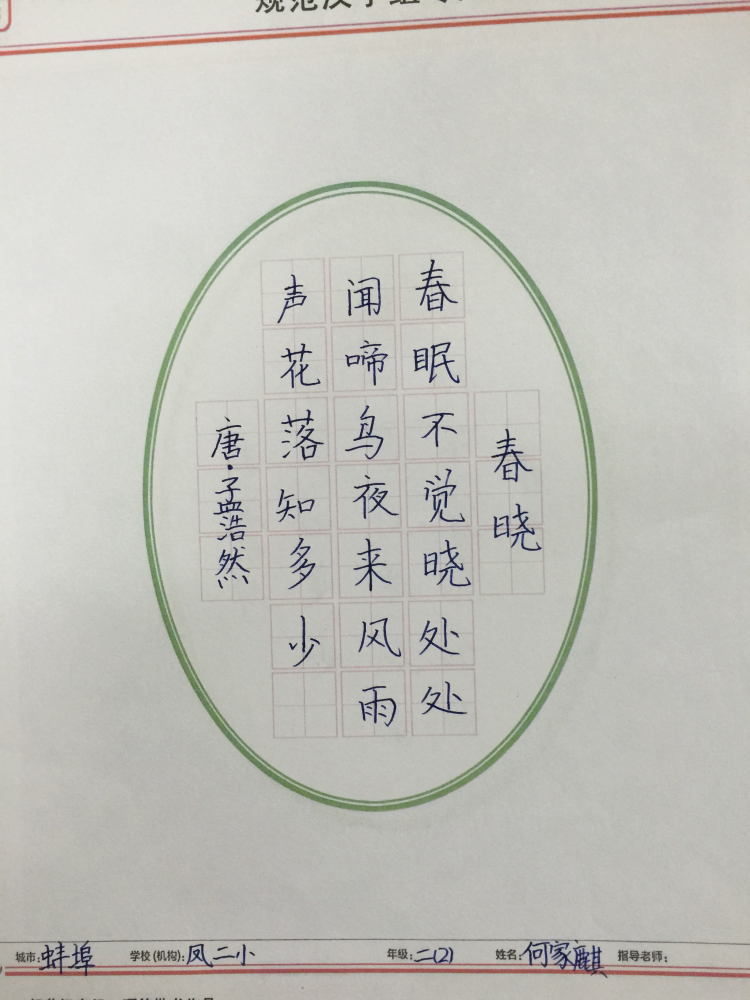 春晓
春眠不觉晓处处
闻啼鸟夜来风雨
声花落知多少
唐·孟浩然
城市：蚌埠 学校(机构)：凤二小 年级：二(2) 姓名：何家麒 指导老师：